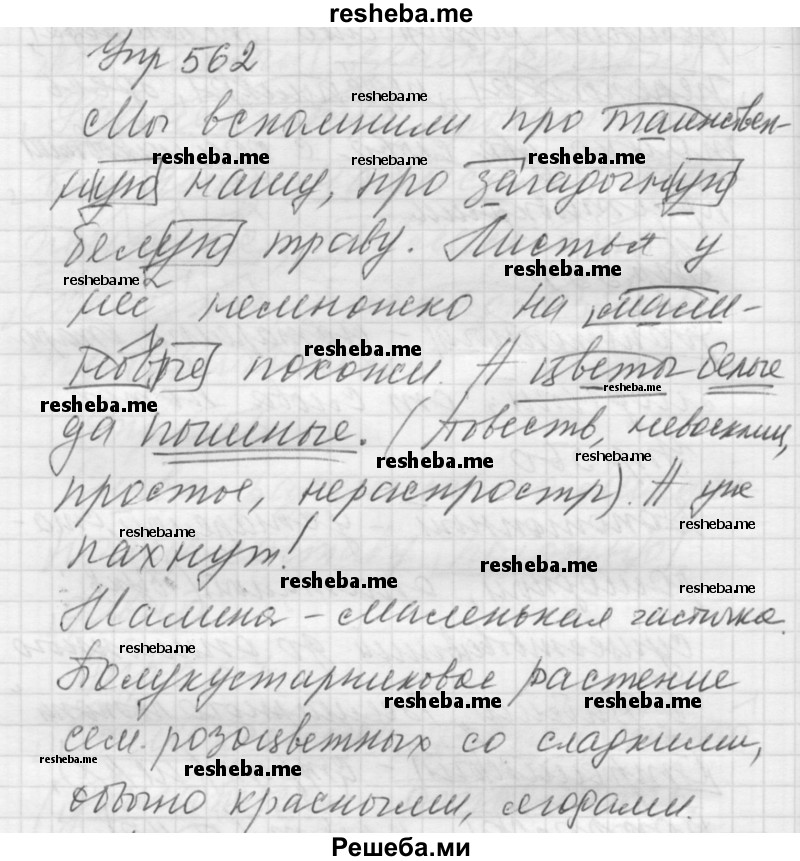 resheba.me
Упр 562
resheba.me
Мы вспомнили про таинствен-
resheba.me resheba.me resheba.me
ную нашу, про загадочную
белую траву. Листья у
resheba.me resheba.me
неё немножко на мали-
новые похожи. А цветы белые
resheba.me resheba.me
resheba.me
да пышные. (Повеств, невосклиц,
resheba.me resheba.me
простое, нераспростр). А уж
resheba.me resheba.me
пахнут!
resheba.me resheba.me
resheba.me
Малина - маленькая частичка.
resheba.me
Полукустарниковое растение
resheba.me resheba.me
сем. розоцветных со сладкими,
resheba.me resheba.me
обычно красными, ягодами.
Решеба.ми